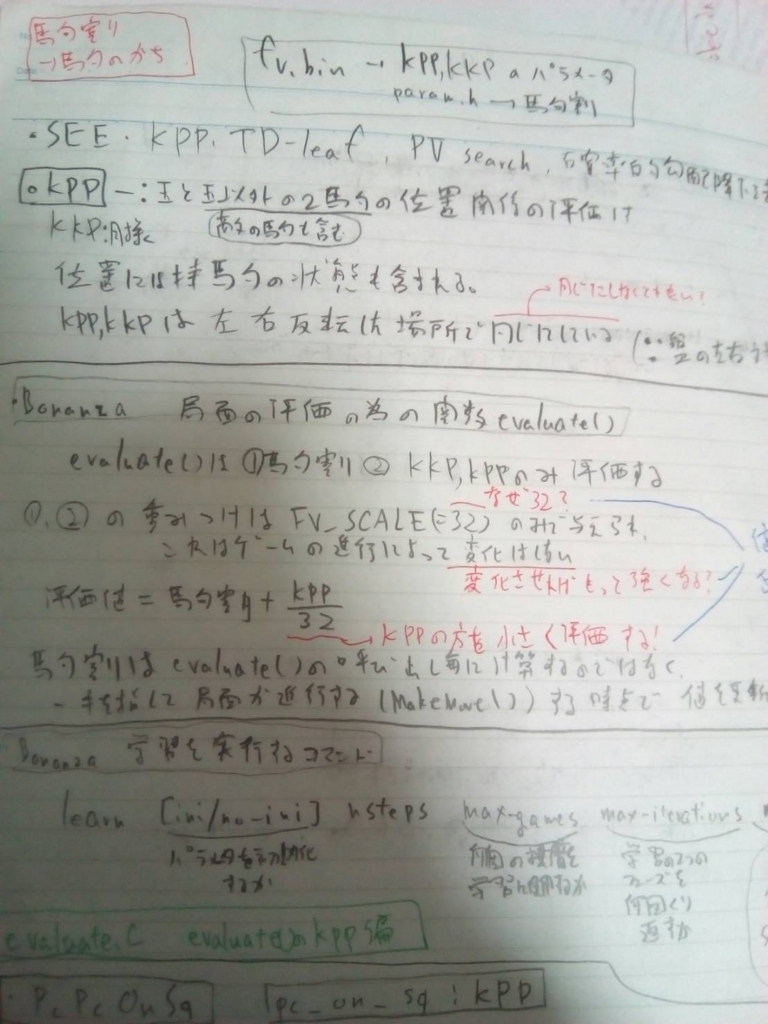 駒割り
→駒のかち
fv.bin → kpp,kkp a パラメータ
param.h → 駒割り
・SEE・KPP. TD-leaf, PV search, 確率的勾配降下法
・KPP 一:玉と玉以外の2駒の位置関係の評価
KKP:同様
位置には持駒の状態も含まれる。
同じにしなくても良い!
kpp,kkpは左右反転した場所で同じにしている (∵盤の左右
・Bonanza 局面の評価の為の関数 evaluate()
evaluate()は①駒割り② KKP,KPPのみ評価する
なぜ32?
①,②の重みつけは FV_SCALE(=32) のみで与えられ,
これはゲームの進行によって変化はしない
変化させればもっと強くなる?
評価値 = 駒割り + kpp
32
→ KPPの方を小さく評価する!
駒割りは evaluate()の呼び出し毎に計算するのではなく、
一手指して局面が進行する (MakeMove()) する時点で 値を更新
Bonanza 学習を実行するコマンド
learn [ini/no-ini] nsteps max-games max-iterations
パラメタを初期化
するか
何個の棋譜を
学習に使用するか
学習の2つの
フェーズを
何回くり
返すか
evaluate.c evaluate()のkpp編
・PcPcOnSq pc_on_sq : kpp